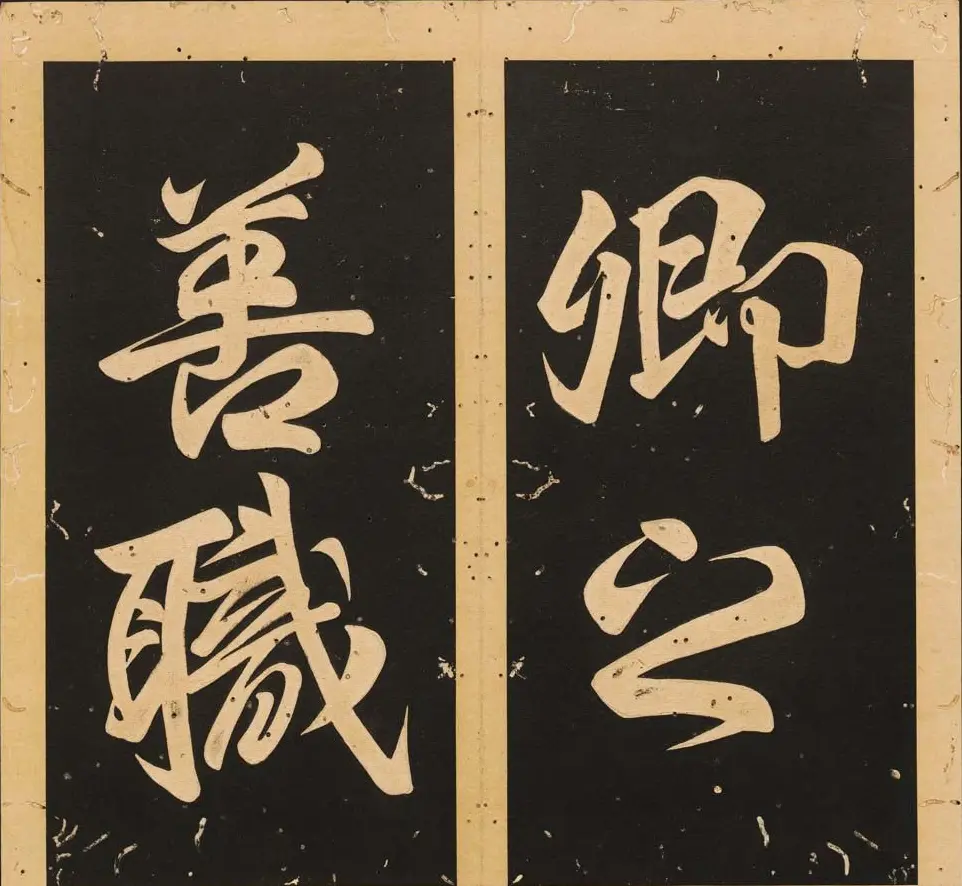 卿之
善職